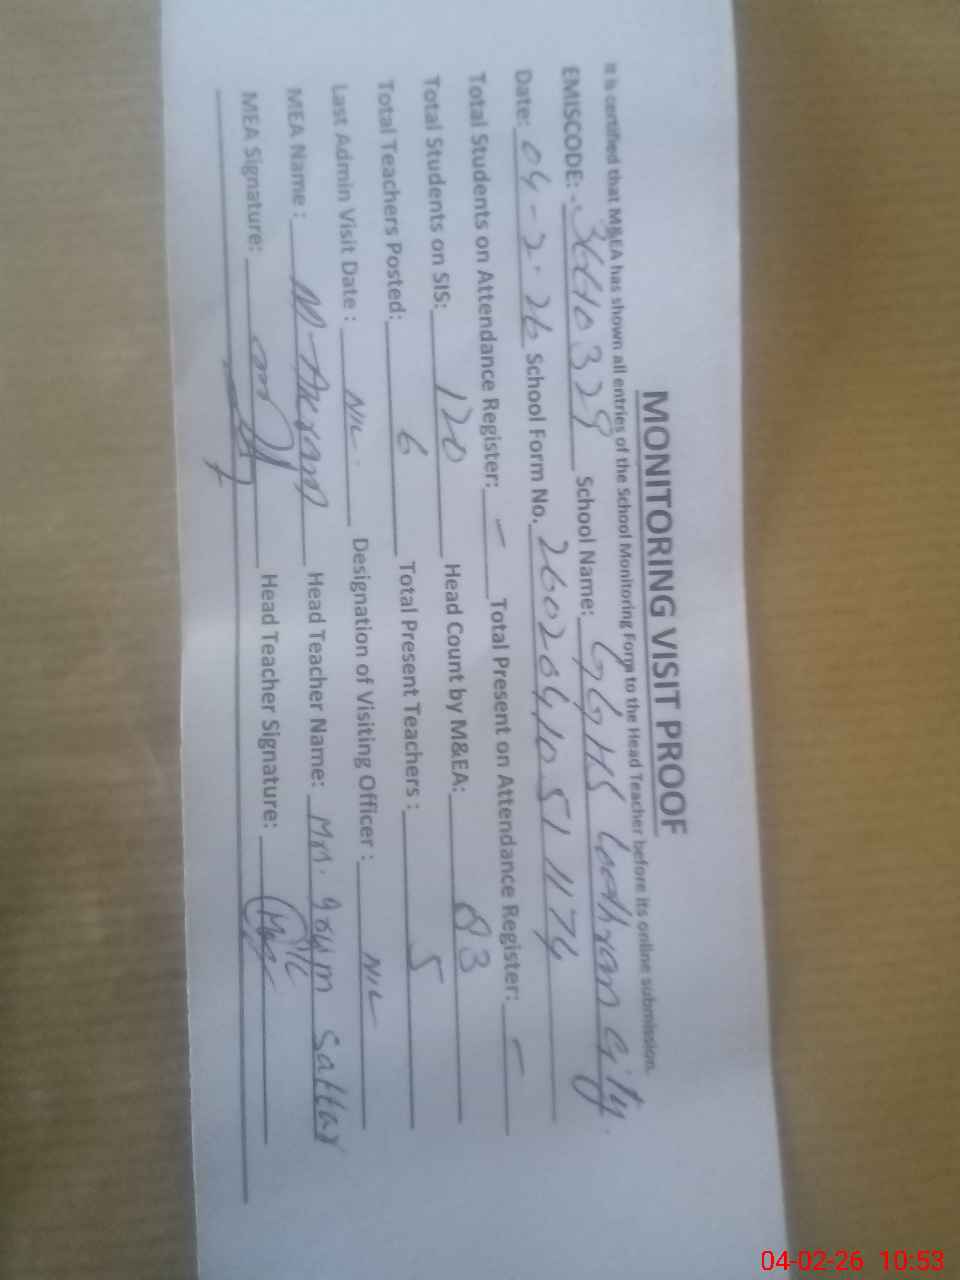 MONITORING VISIT PROOF
It is certified that M&EA has shown all entries of the School Monitoring Form to the Head Teacher before its online submission.
EMISCODE: 36410329 School Name: GGHS Lodhran City.
Date: 04-2-26 School Form No. 260204105 1174
Total Students on Attendance Register: - Total Present on Attendance Register: -
Total Students on SIS: 120 Head Count by M&EA: 83
Total Teachers Posted: 6 Total Present Teachers : 5
Last Admin Visit Date : NIL. Designation of Visiting Officer : NIL
MEA Name : M. Akram Head Teacher Name: Sattar
MEA Signature: Head Teacher Signature:
04-02-26 10:53